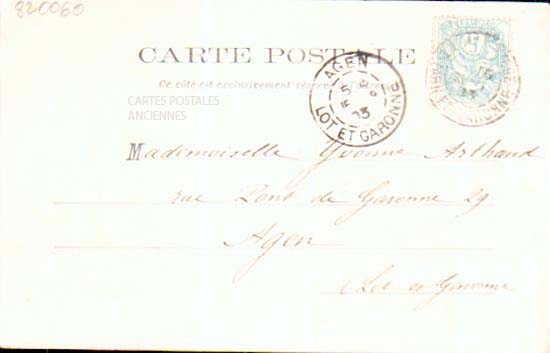 820060
CARTE POSTALE
Ce côté est exclusivement réservé
AGEN
LOT ET GARONNE
CARTES POSTALES
ANCIENNES
Mademoiselle Yvonne Arthaud
rue Pont de Garonne 29
Agen
Lot et Garonne